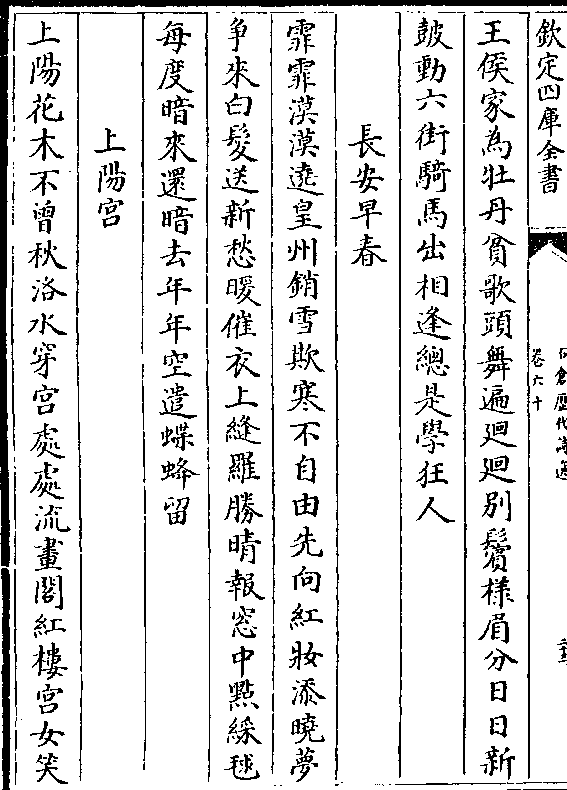 欽定四庫全書
卷六十
王侯家為牡丹貧歌頭舞遍迴迴别鬢樣眉分日日新
皷動六街騎馬出相逢總是學狂人
長安早春
霏霏漠漠遶皇州銷雪欺寒不自由先向紅妝添曉夢
争來白髮送新愁暖催衣上縫羅勝晴報窓中點綵毬
每度暗來還暗去年年空遣蝶蜂留
上陽宫
上陽花木不曾秋洛水穿宫處處流畫閣紅樓宫女笑